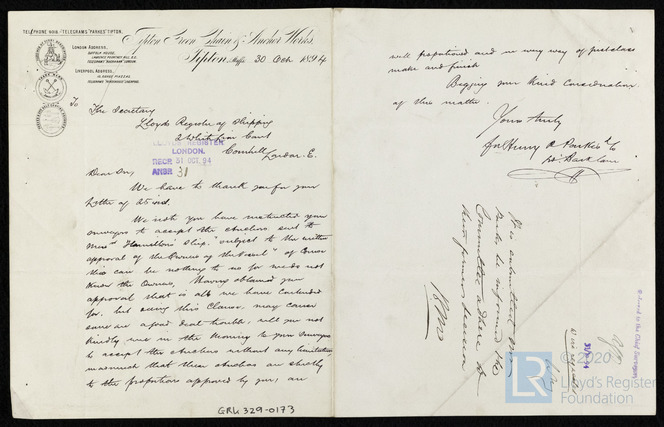 TELEPHONE 5019. TELEGRAMS "PARKES" TIPTON.
Tipton Green Chain & Anchor Works,
Tipton, Staffs 30 Oct 1894
LONDON ADDRESS,
SUFFOLK HOUSE,
LAURENCE POUNTNEY HILL, E.C.
LIVERPOOL ADDRESS,
To
The Secretary
Lloyds Register of Shipping
2 White Lion Court
Cornhill London. E.
LLOYD'S REGISTER
LONDON.
RECR 31 OCT. 94
ANSR 31
Dear Sir,
We have to thank you for your
letter of 25 inst.
We note you have instructed your
Surveyors to accept the anchors sent to
Messrs Hamilton's Ship, "subject to the written
approval of the Owners of the Vessel" of course
this can be nothing to us for we do not
know the Owners, Having obtained your
approval that is all we have contended
for, but seeing this Clause, may cause
some one a good deal trouble, will you not
kindly wire in the morning to your Surveyors
to accept the anchors without any limitation
inasmuch that these anchors are strictly
to the proportions approved by you, are
well proportioned and in every way of first class
make and finish
Begging your kind consideration
of this matter.
Yours truly
for Henry P. Parkes & Co
Committee adhere to
their previous decision
Referred to the Chief Surveyor
30/10/94
GRK 329-0173
LR
©2020
Lloyd's Register
Foundation